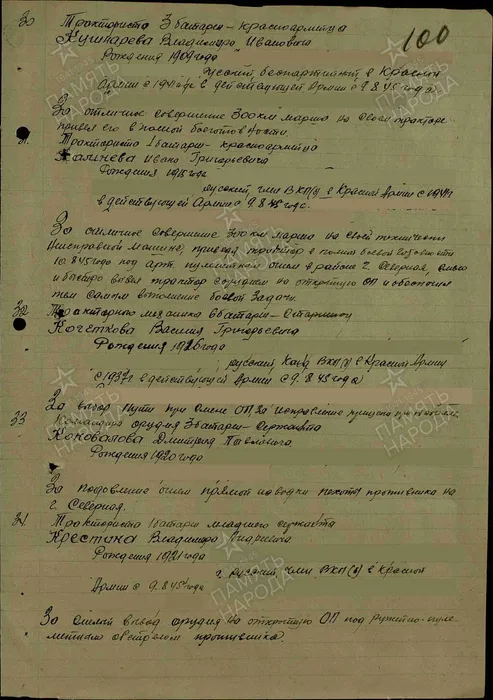 30 Тракториста 3 батареи - красноармейца
100
Кушнарева Владимира Ивановича
Рождения 1909 года
русский, беспартийный в Красной
Армии с 1941 года в действующей Армии с 9.8.45 года.
За отличное совершение 300 км марша на своем тракторе
привел его в полной боевой
31. Тракториста 1 батареи - красноармейца
Ивана Григорьевича
Рождения 1918 года
русский, член ВКП(б) в Красной Армии с
в действующей Армии с 9.8.45 года.
За отличное совершение 300 км марша на своей технически
неисправной машине, привел трактор в полной боевой
10.8.45 года под арт. пулеметным огнем в районе г. Северная, смело
и быстро вывел трактор с орудием на открытую ОП и обеспечил
тем самым выполнение боевой задачи.
32. Тракторного механика батареи - Старшину
Кочеткова Василия Григорьевича
Рождения 1916 года
русский, канд ВКП(б) в Красной Армии
с 1937 г в действующей Армии с 9.8.45 года
За выбор пути при смене ОП за исправление прицела
33 Командира орудия 3 батареи - Сержанта
Коновалова Дмитрия Павловича
Рождения 1920 года
За подавление огнем прямой наводки пехоты противника на
г. Северная.
34 Тракториста 1 батареи младшего сержанта
Владимира Андреевича
Рождения 1921 года
русский, член ВКП(б) в Красной
Армии с 9.8.45 года
За смелый вывод орудия на открытую ОП под ружейно-пуле
метным обстрелом противника.
ПАМЯТЬ НАРОДА